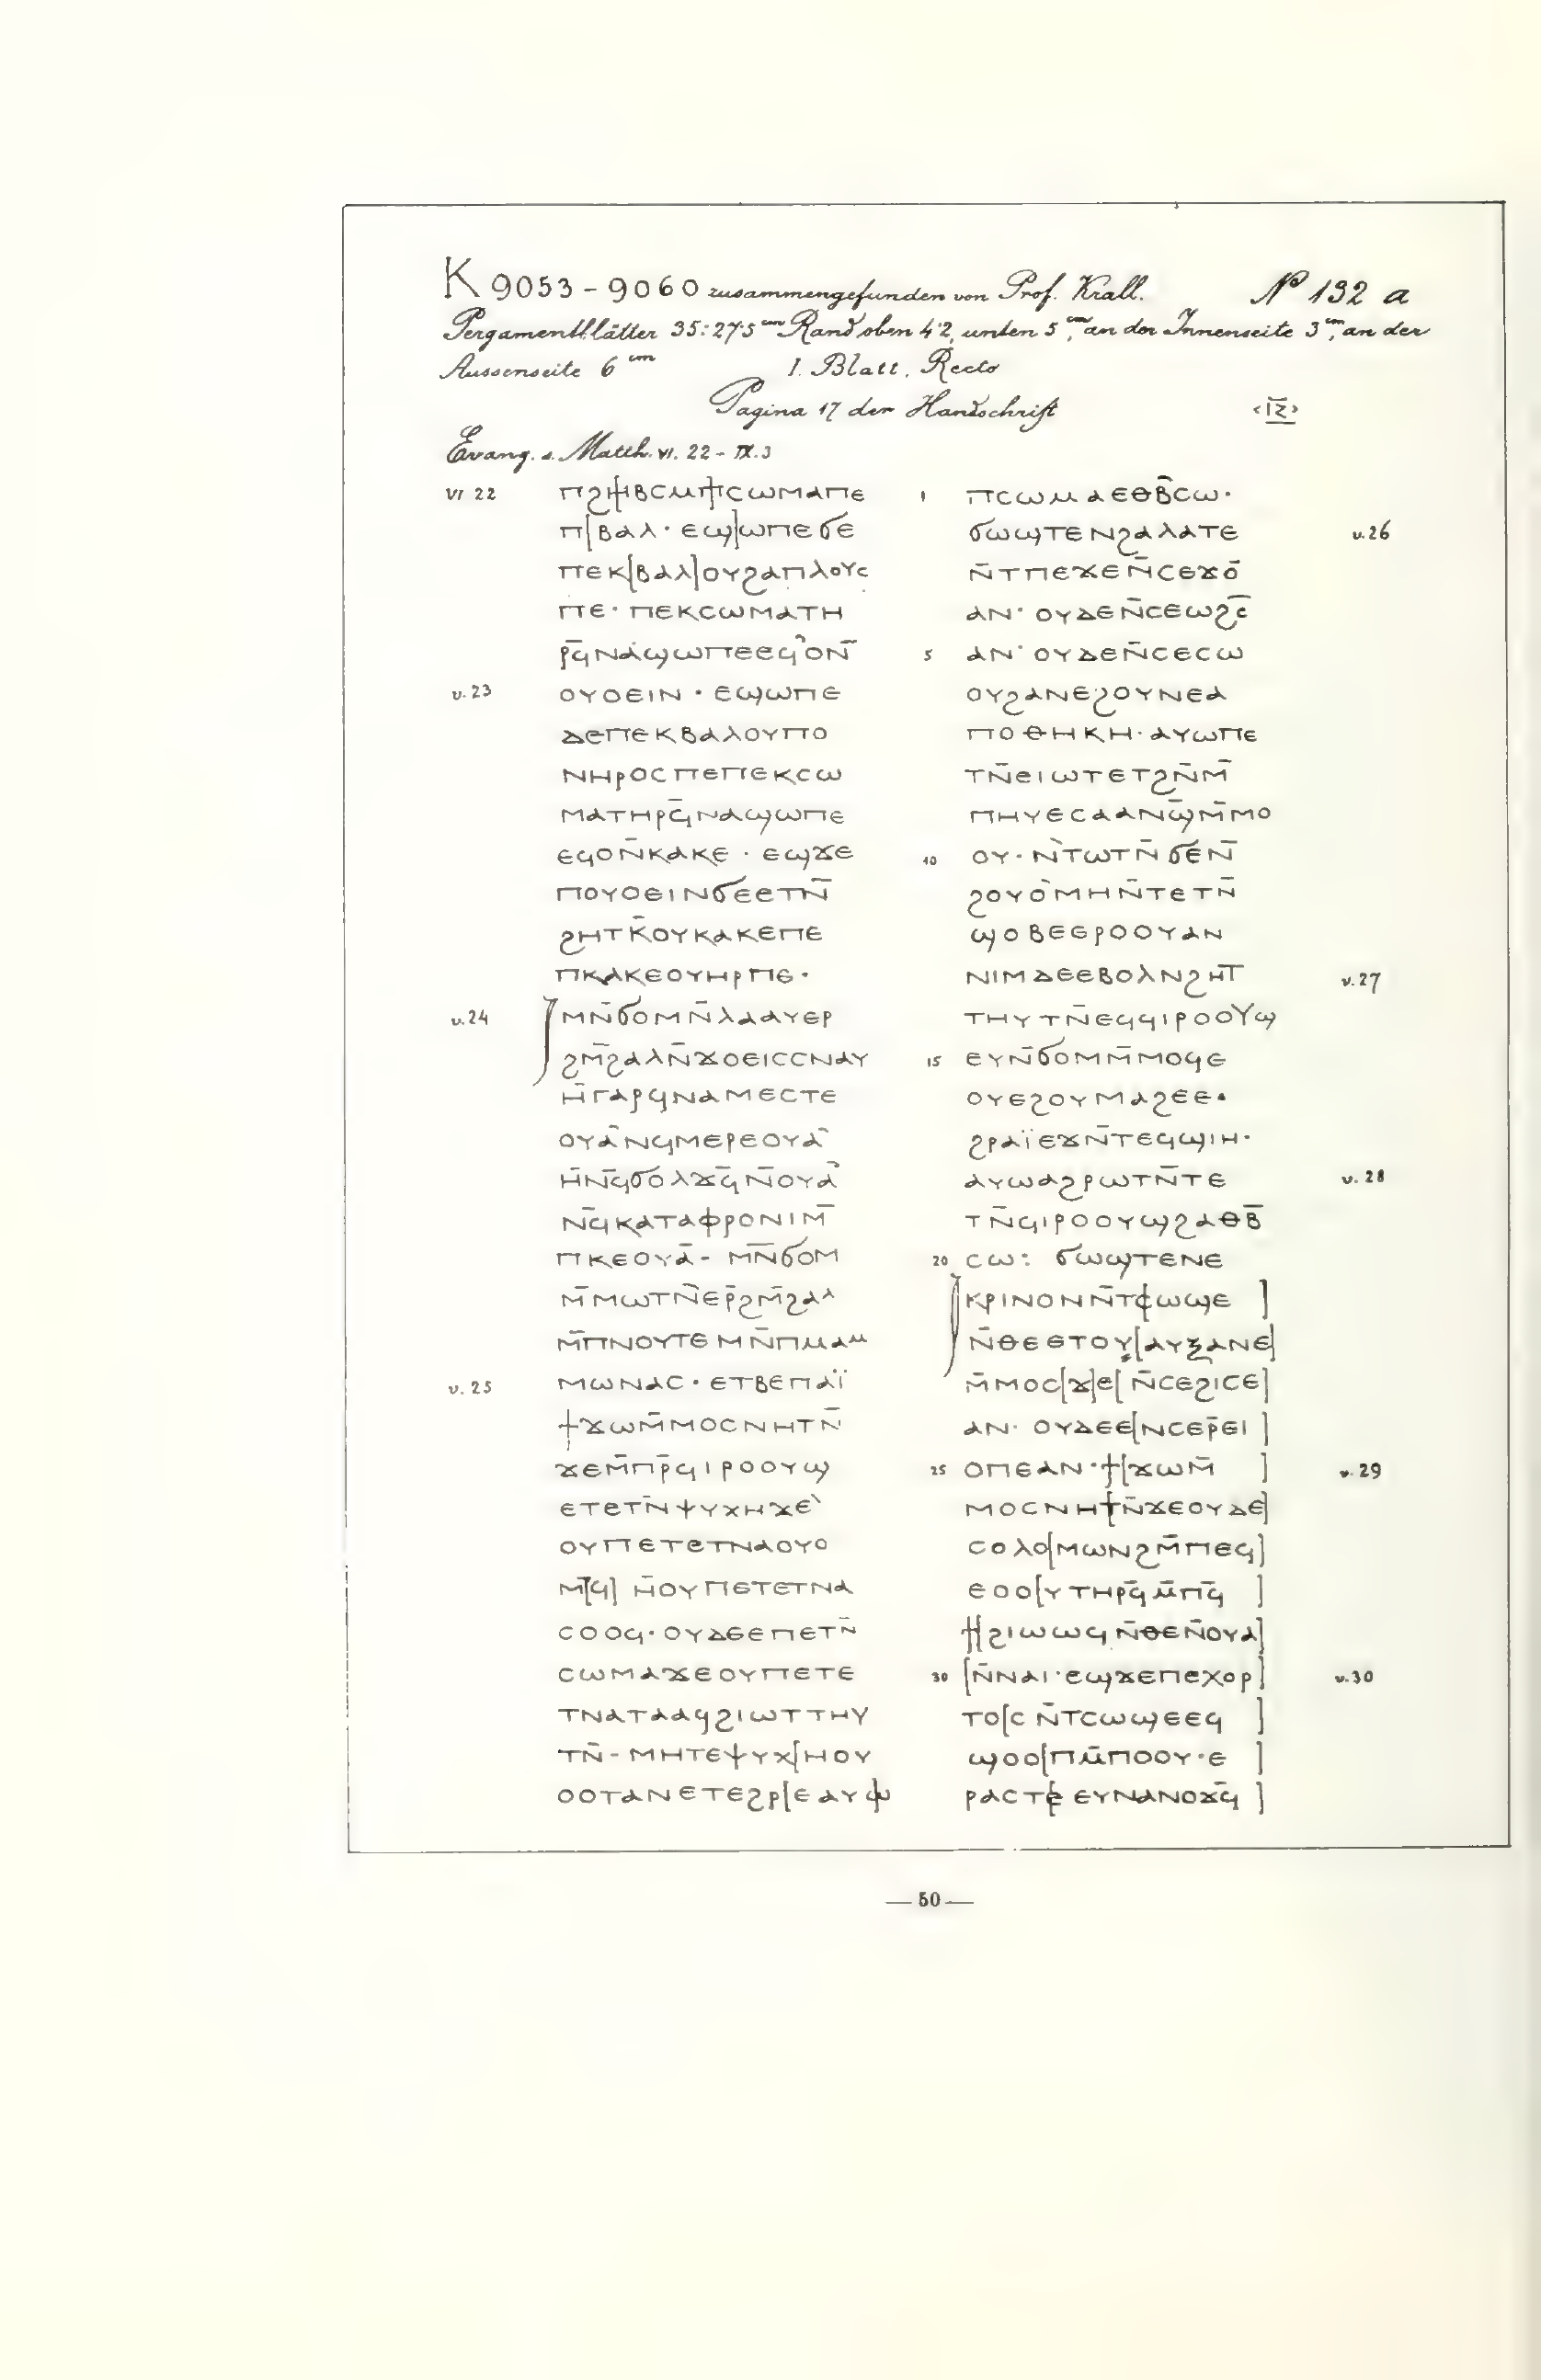 K 9053 - 9060 zusammengefunden von Prof. Krall. Nº 132 a
Pergamentblätter 35:27·5 cm Rand oben 4·2, unten 5 cm, an der Innenseite 3 cm, an der
Aussenseite 6 cm I. Blatt. Recto
Pagina 17 der Handschrift <ⲓ̅ⲍ̅>
Evang. s. Matth. VI. 22 - IX. 3
VI 22 ⲡϩⲏⲃⲥⲙⲡⲥⲱⲙⲁⲡⲉ
ⲡ[ⲃⲁⲗ· ⲉϣ]ⲱⲡⲉϭⲉ
ⲡⲉⲕ[ⲃⲁⲗ]ⲟⲩϩⲁⲡⲗⲟⲩⲥ
ⲡⲉ· ⲡⲉⲕⲥⲱⲙⲁⲧⲏ
ⲣϥ̅ⲛⲁϣⲱⲡⲉⲉϥⲟⲛ̅
v. 23 ⲟⲩⲟⲉⲓⲛ · ⲉϣⲱⲡⲉ
ⲇⲉⲡⲉⲕⲃⲁⲗⲟⲩⲡⲟ
ⲛⲏⲣⲟⲥⲡⲉⲡⲉⲕⲥⲱ
ⲙⲁⲧⲏⲣϥ̅ⲛⲁϣⲱⲡⲉ
ⲉϥⲟⲛ̅ⲕⲁⲕⲉ · ⲉϣϫⲉ
ⲡⲟⲩⲟⲉⲓⲛϭⲉⲉⲧⲛ̅
ϩⲏⲧⲕ̅ⲟⲩⲕⲁⲕⲉⲡⲉ
ⲡⲕⲁⲕⲉⲟⲩⲏⲣⲡⲉ·
v. 24 ⲙⲛ̅ϭⲟⲙⲛ̅ⲗⲁⲁⲩⲉⲣ
ϩⲙ̅ϩⲁⲗⲛ̅ϫⲟⲉⲓⲥⲥⲛⲁⲩ
ⲏ̅ⲅⲁⲣϥⲛⲁⲙⲉⲥⲧⲉ
ⲟⲩⲁ̅ⲛϥⲙⲉⲣⲉⲟⲩⲁ̅
ⲏ̅ⲛϥ̅ϭⲟⲗϫϥ̅ⲛ̅ⲟⲩⲁ̅
ⲛϥ̅ⲕⲁⲧⲁⲫⲣⲟⲛⲓⲙ̅
ⲡⲕⲉⲟⲩⲁ̅- ⲙⲛ̅ϭⲟⲙ
ⲙ̅ⲙⲱⲧⲛ̅ⲉⲣ̅ϩⲙ̅ϩⲁⲗ
ⲙ̅ⲡⲛⲟⲩⲧⲉⲙⲛ̅ⲡⲙⲁⲙ
v. 25 ⲙⲱⲛⲁⲥ· ⲉⲧⲃⲉⲡⲁⲓ̈
ϯϫⲱⲙ̅ⲙⲟⲥⲛⲏⲧⲛ̅
ϫⲉⲙ̅ⲡⲣ̅ϥⲓⲣⲟⲟⲩϣ
ⲉⲧⲉⲧⲛ̅ⲯⲩⲭⲏϫⲉ̀
ⲟⲩⲡⲉⲧⲉⲧⲛⲁⲟⲩⲟ
ⲙ̅[ϥ] ⲏ̅ⲟⲩⲡⲉⲧⲉⲧⲛⲁ
ⲥⲟⲟϥ· ⲟⲩⲇⲉⲉⲡⲉⲧⲛ̅
ⲥⲱⲙⲁϫⲉⲟⲩⲡⲉⲧⲉ
ⲧⲛⲁⲧⲁⲁϥϩⲓⲱⲧⲧⲏⲩ
ⲧⲛ̅- ⲙⲏⲧⲉⲯⲩⲭ[ⲏⲟⲩ
ⲟⲟⲧⲁⲛⲉⲧⲉϩⲣ[ⲉⲁⲩⲱ
1 ⲡⲥⲱⲙⲁⲉⲑⲃ̅ⲥⲱ·
ϭⲱϣⲧⲉⲛϩⲁⲗⲁⲧⲉ v. 26
ⲛ̅ⲧⲡⲉϫⲉⲛ̅ⲥⲉϫⲟ̅
ⲁⲛ· ⲟⲩⲇⲉⲛ̅ⲥⲉⲱϩⲥ̅
5 ⲁⲛ· ⲟⲩⲇⲉⲛ̅ⲥⲉⲥⲱ
ⲟⲩϩⲁⲛⲉϩⲟⲩⲛⲉⲁ
ⲡⲟⲑⲏⲕⲏ· ⲁⲩⲱⲡⲉ
ⲧⲛ̅ⲉⲓⲱⲧⲉⲧϩⲛ̅ⲙ̅
ⲡⲏⲩⲉⲥⲁⲁⲛϣ̅ⲙ̅ⲙⲟ
10 ⲟⲩ· ⲛ̅ⲧⲱⲧⲛ̅ϭⲉⲛ̅
ϩⲟⲩⲟ̀ⲙⲏⲛ̅ⲧⲉⲧⲛ̅
ϣⲟⲃⲉⲉⲣⲟⲟⲩⲁⲛ
ⲛⲓⲙⲇⲉⲉⲃⲟⲗⲛϩⲏⲧ̅ v. 27
ⲧⲏⲩⲧⲛ̅ⲉϥϥⲓⲣⲟⲟⲩϣ
15 ⲉⲩⲛ̅ϭⲟⲙⲙ̅ⲙⲟϥⲉ
ⲟⲩⲉϩⲟⲩⲙⲁϩⲉⲉ·
ϩⲣⲁⲓ̈ⲉϫⲛ̅ⲧⲉϥϣⲓⲏ·
ⲁⲩⲱⲁϩⲣⲱⲧⲛ̅ⲧⲉ v. 28
ⲧⲛ̅ϥⲓⲣⲟⲟⲩϣϩⲁⲑⲃ̅
20 ⲥⲱ: ϭⲱϣⲧⲉⲛⲉ
ⲕⲣⲓⲛⲟⲛⲛ̅ⲧⲥⲱϣⲉ ]
ⲛ̅ⲑⲉⲉⲧⲟⲩ[ⲁⲩⲝⲁⲛⲉ]
ⲙ̅ⲙⲟⲥ[ϫ]ⲉ[ ⲛ̅ⲥⲉϩⲓⲥⲉ]
ⲁⲛ· ⲟⲩⲇⲉⲉ[ⲛⲥⲉⲣ̅ⲉⲓ ]
25 ⲟⲡⲉⲁⲛ·ϯ[ϫⲱⲙ̅ ] v. 29
ⲙⲟⲥⲛⲏⲧⲛ̅ϫⲉⲟⲩⲇⲉ]
ⲥⲟⲗⲟ[ⲙⲱⲛϩⲙ̅ⲡⲉϥ]
ⲉⲟⲟ[ⲩⲧⲏⲣϥ̅ⲙ̅ⲡϥ̅ ]
ϯ[ϩⲓⲱⲱϥⲛ̅ⲑⲉⲛ̅ⲟⲩⲁ]
30 [ⲛ̅ⲛⲁⲓ·ⲉϣϫⲉⲡⲉⲭⲟⲣ] v. 30
ⲧⲟ[ⲥ ⲛ̅ⲧⲥⲱϣⲉⲉϥ ]
ϣⲟⲟ[ⲡⲙ̅ⲡⲟⲟⲩ·ⲉ ]
ⲣⲁⲥⲧⲉ ⲉⲩⲛⲁⲛⲟϫϥ̅ ]
— 50 —